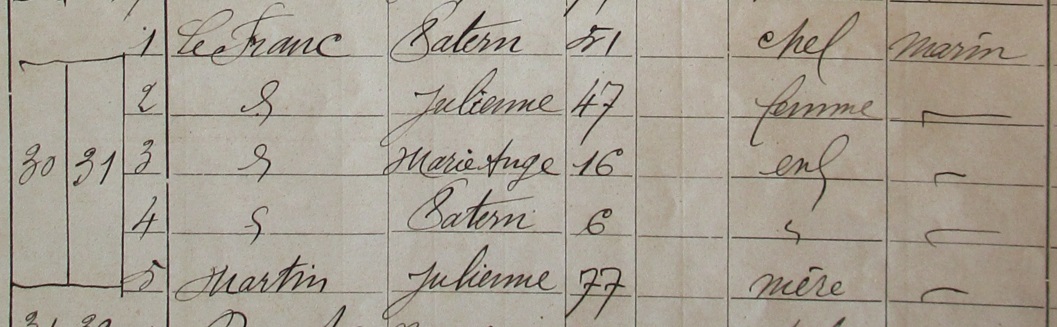 1 Le Franc Patern 51 chef marin
2 " Julienne 47 femme —
30 31 3 " Marie Ange 16 enf —
4 " Patern 6 " —
5 Martin Julienne 77 mère —